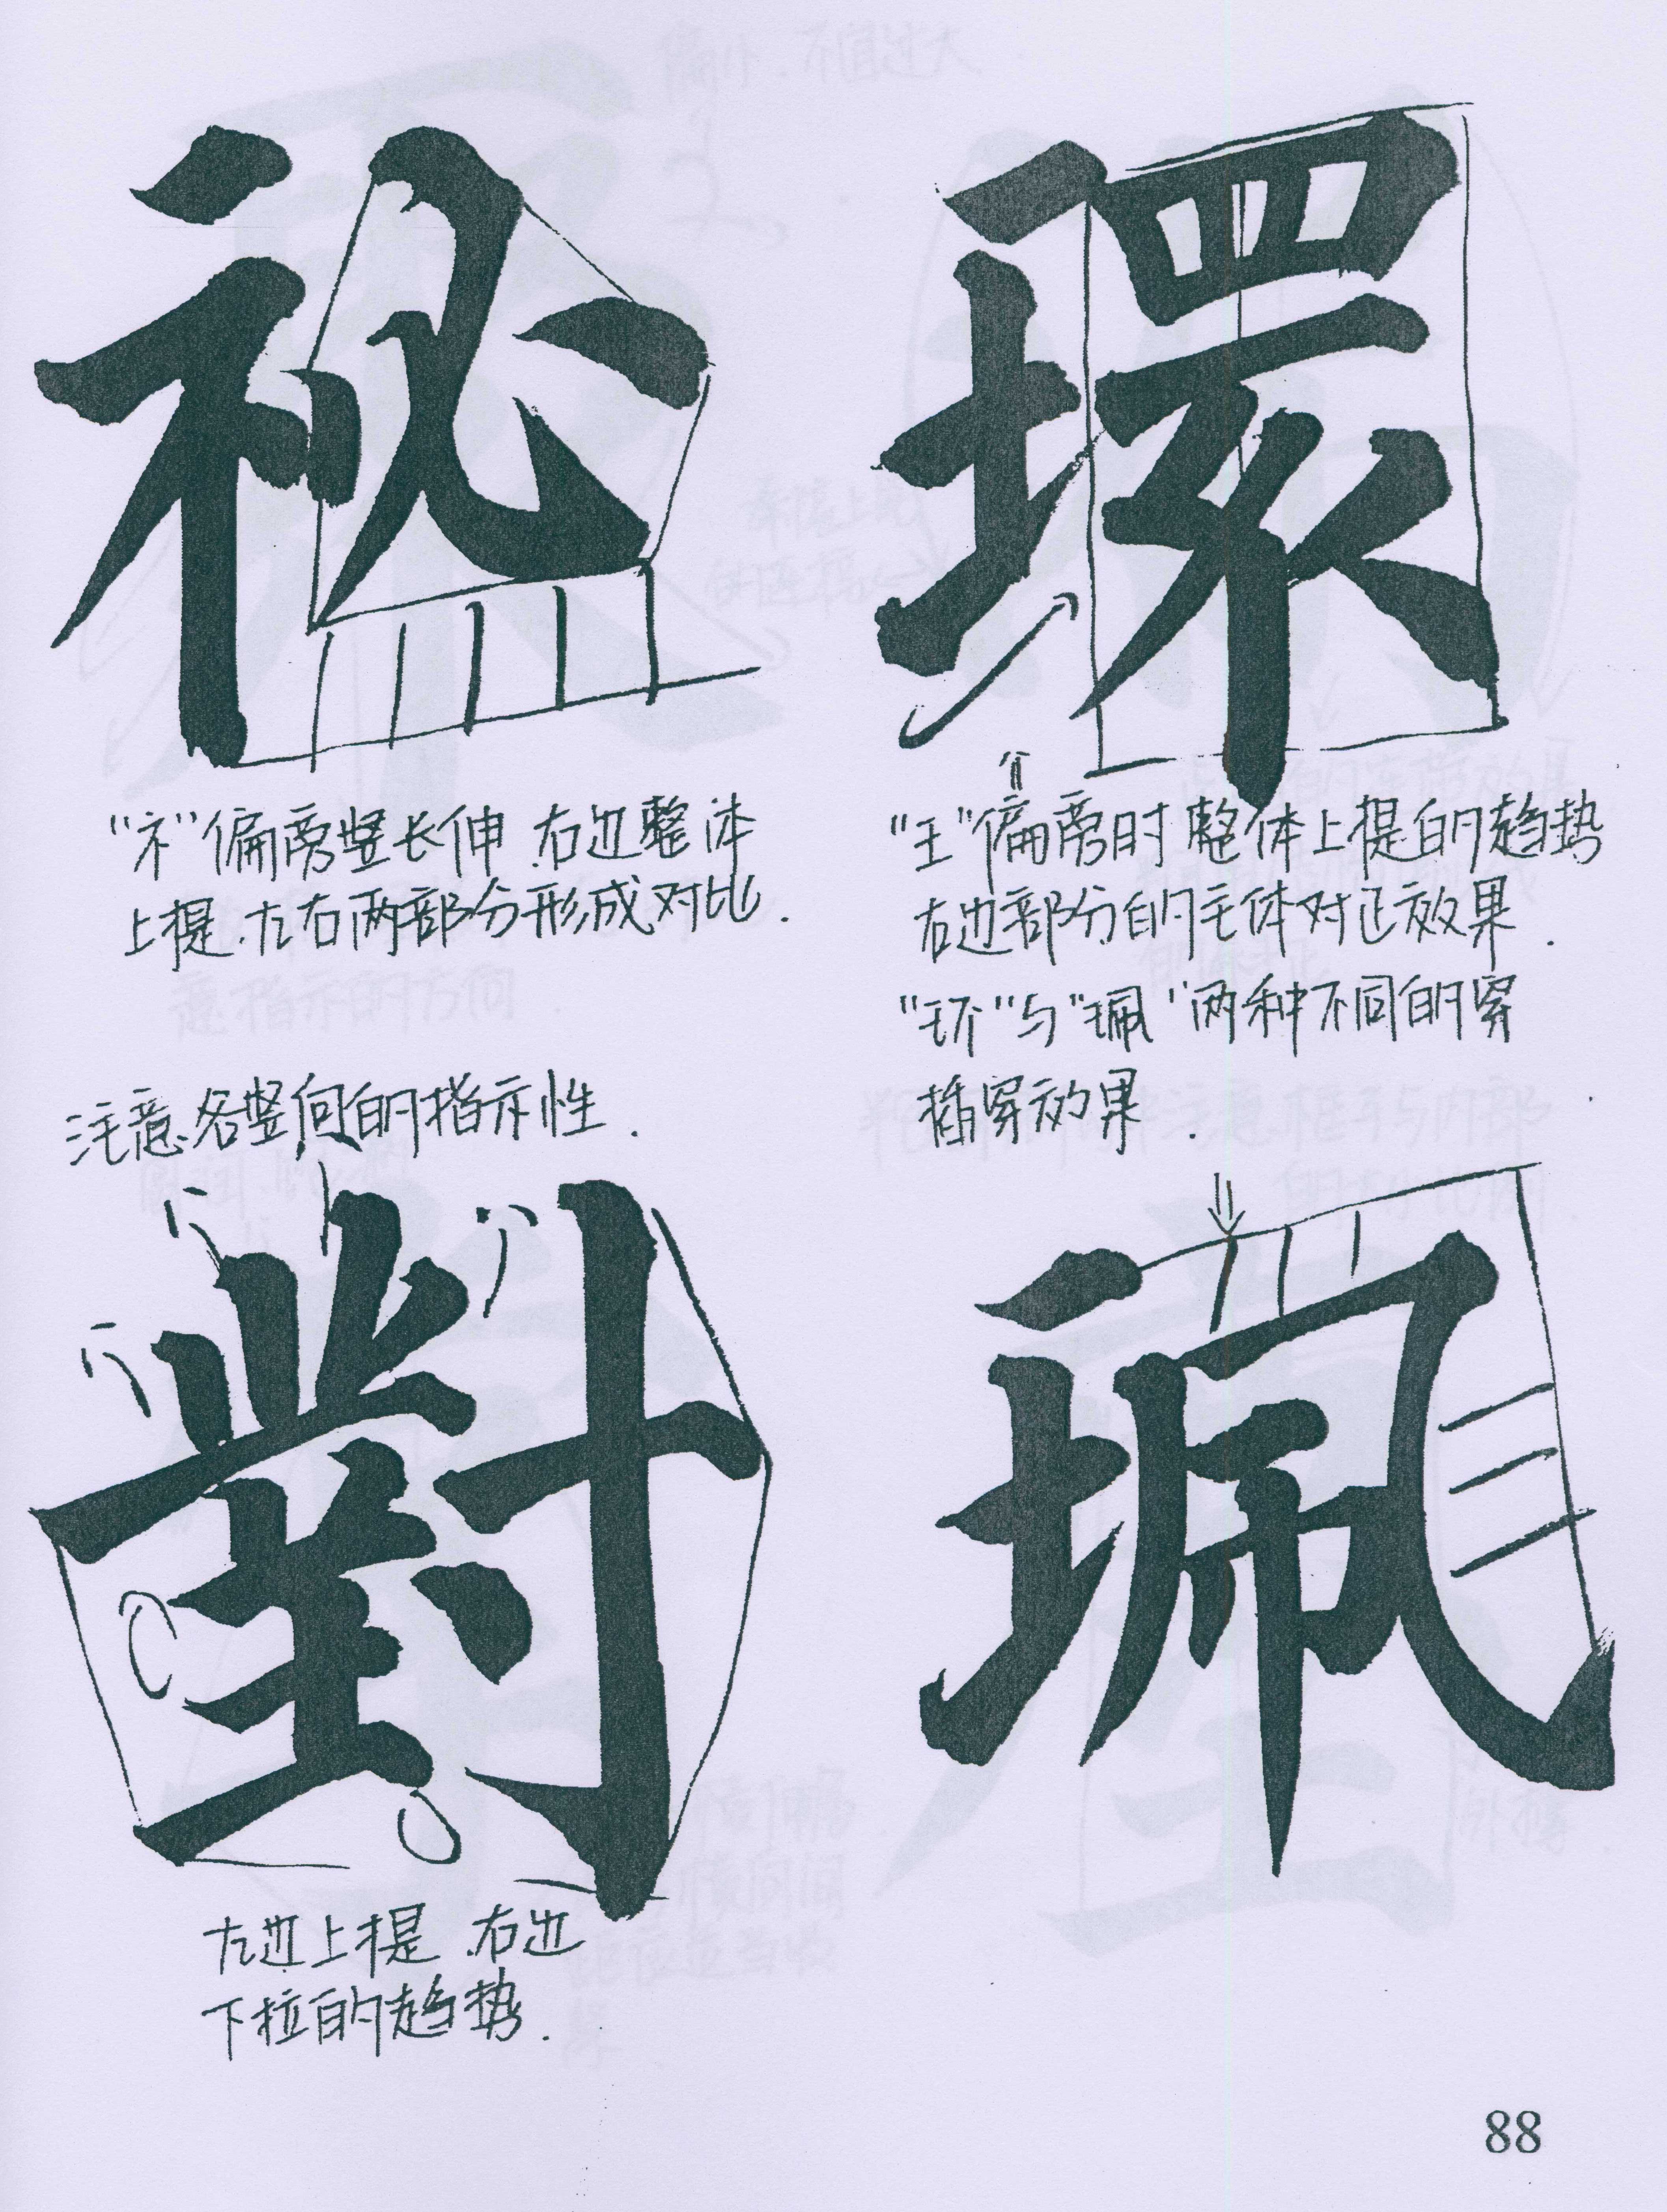 祕
環
"礻"偏旁竖长伸.右边整体
上提.左右两部分形成对比.
"王"偏旁时整体上提的趋势
右边部分的主体对正效果.
"环"与"珮"两种不同的穿
插穿效果.
注意各竖向的指示性.
對
珮
左边上提.右边
下拉的趋势.
88